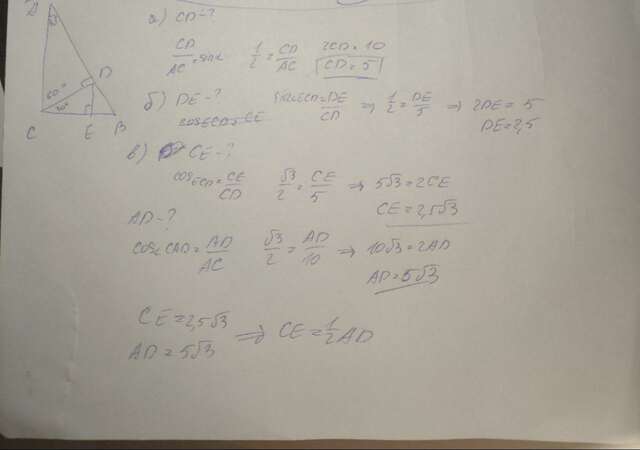 A
D
60°
30°
C E B
а) CD-?
CD/AC = sin α 1/2 = CD/AC 2CD = 10
CD = 5
б) DE-? sin ECD = DE/CD ⇒ 1/2 = DE/5 ⇒ 2DE = 5
DE = 2,5
в) CE-?
cos ECD = CE/CD √3/2 = CE/5 ⇒ 5√3 = 2CE
CE = 2,5√3
AD-?
cos CAD = AD/AC √3/2 = AD/10 ⇒ 10√3 = 2AD
AD = 5√3
CE = 2,5√3
AD = 5√3 ⇒ CE = 1/2 AD